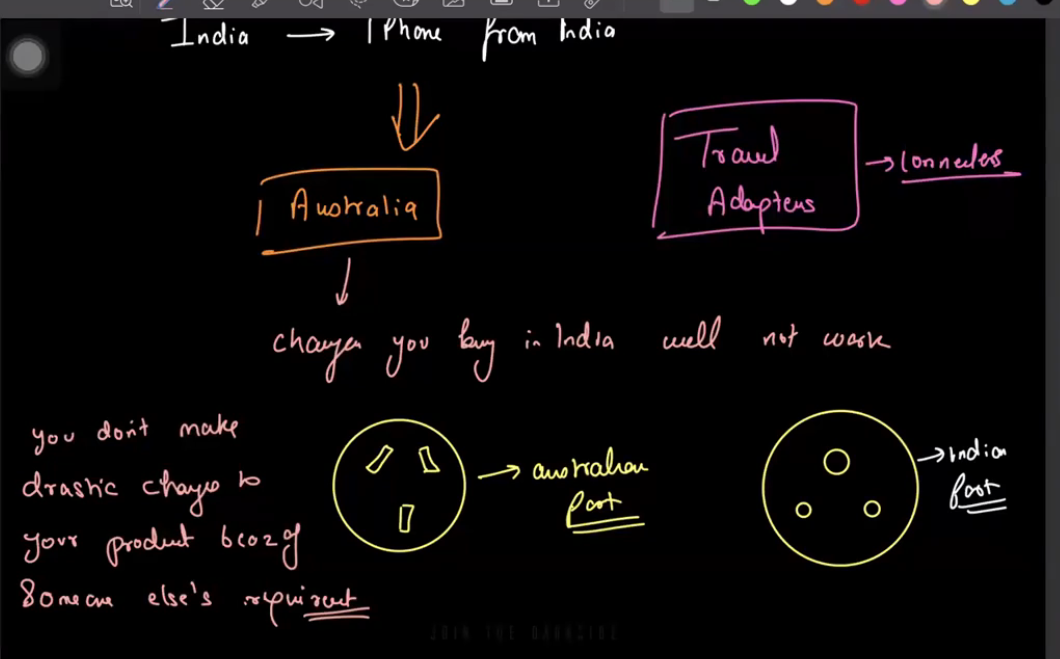 India → IPhone from India
Travel
Adapters
→ Connecters
Australia
charger you buy in India well not work
you don't make
drastic changes to
your product bcoz of
Someone else's requirent
→ australian
Port
→ Indian
Port
JOIN THE DARKSIDE